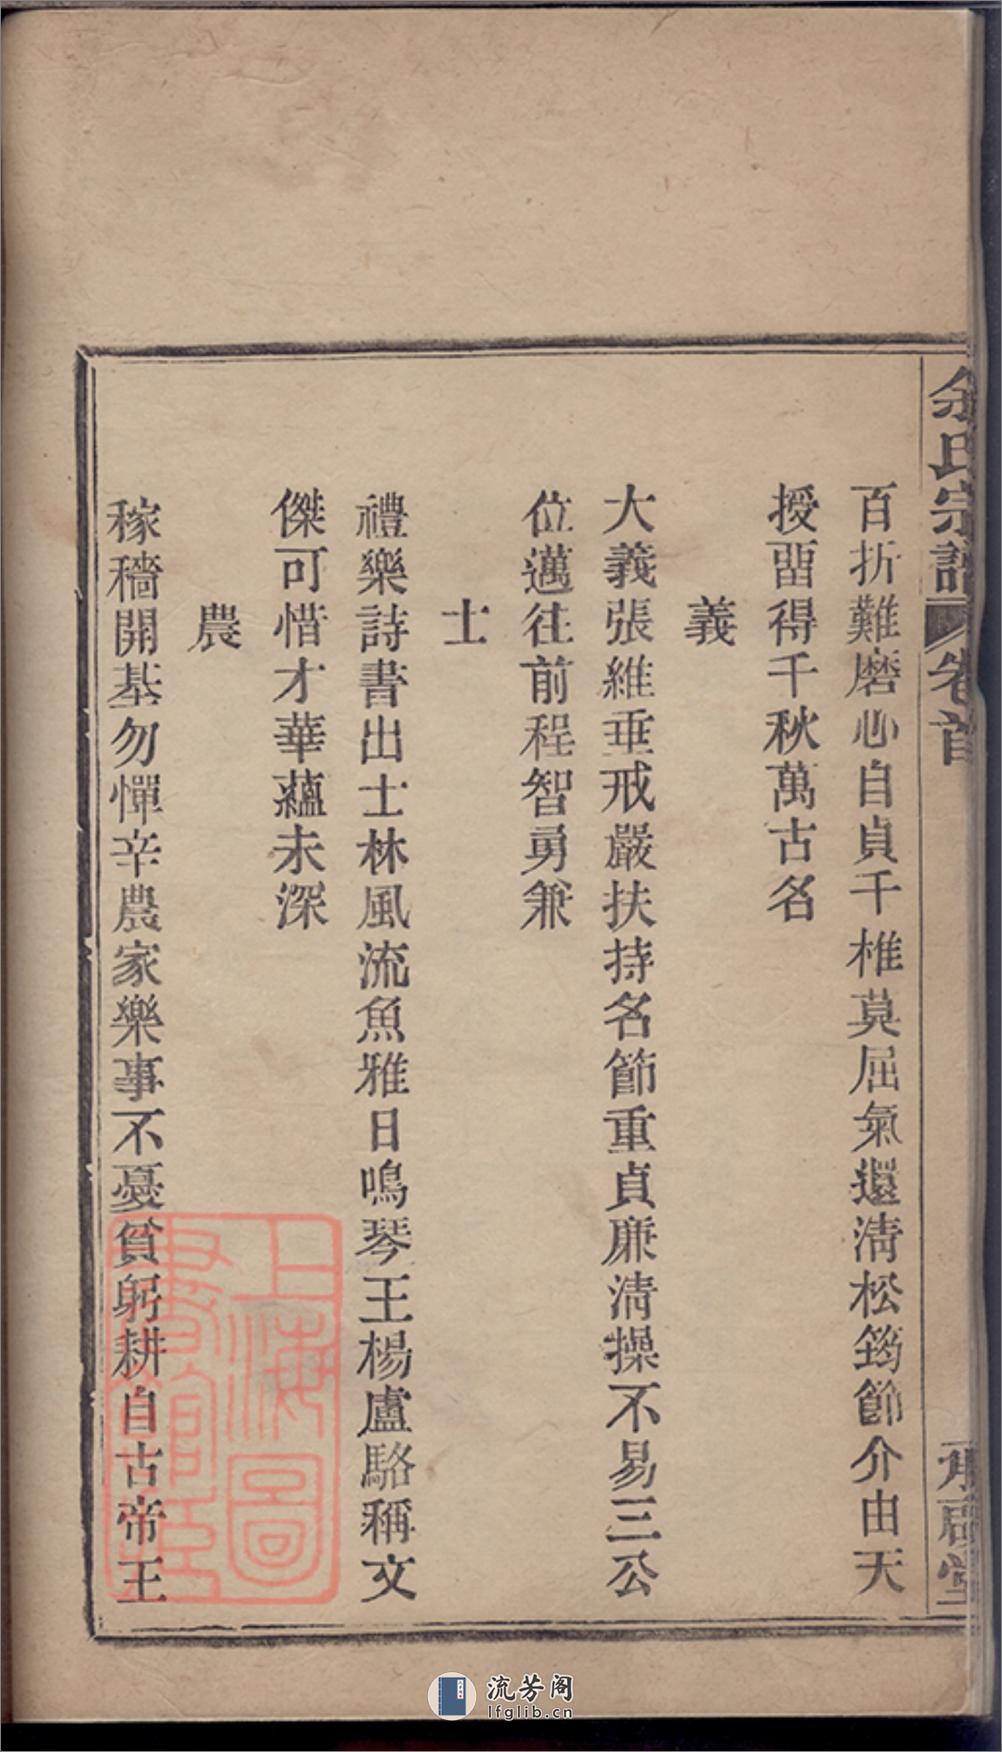 余氏宗譜
卷首
百折難磨心自貞千椎莫屈氣還清松筠節介由天
授畱得千秋萬古名
義
大義張維垂戒嚴扶持名節重貞廉清操不易三公
位邁往前程智勇兼
士
禮樂詩書出士林風流魚雅日鳴琴王楊盧駱稱文
傑可惜才華蘊未深
農
稼穡開基勿憚辛農家樂事不憂貧躬耕自古帝王
上海圖
書館藏
流芳阁
lfglib.cn